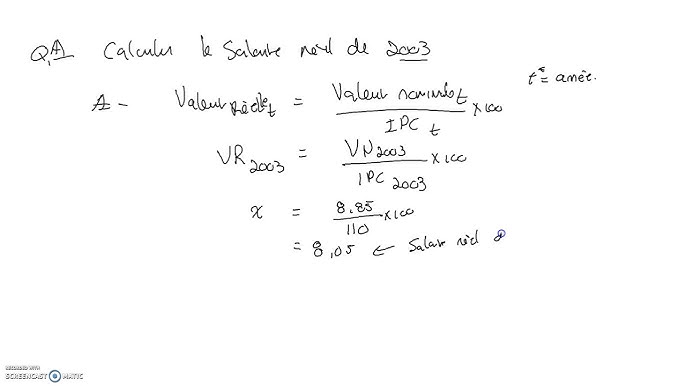 Q.A Calculer le Salaire réel de 2003
t = année.
A - Valeur Réelle t = Valeur nominale t / IPC t × 100
VR 2003 = VN 2003 / IPC 2003 × 100
x = 8,85 / 110 × 100
= 8,05 ← Salaire réel
RECORDED WITH
SCREENCAST MATIC